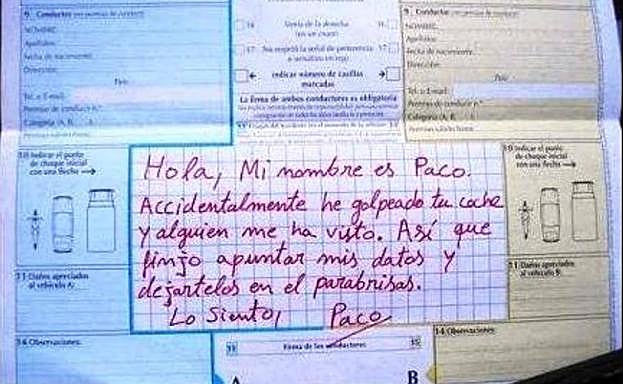 9. Conductor
NOMBRE:
Apellidos:
Fecha de nacimiento:
Dirección:
País:
Tel. o E-mail:
Permiso de conducir n.º
Categoría (A, B, )
16 Venía de la derecha 16
(en un cruce)
17 No respetó la señal de preferencia 17
o semáforo en rojo
indicar número de casillas
marcadas
La firma de ambos conductores es obligatoria
9. Conductor
NOMBRE:
Apellidos:
Fecha de nacimiento:
Dirección:
País:
Tel. o E-mail:
Permiso de conducir n.º
Categoría (A, B, )
10 Indicar el punto
de choque inicial
con una flecha
11 Daños apreciados
al vehículo A:
14 Observaciones:
Hola, Mi nombre es Paco.
Accidentalmente he golpeado tu coche
y alguien me ha visto. Así que
finjo apuntar mis datos y
dejártelos en el parabrisas.
Lo siento, Paco
10 Indicar el punto
de choque inicial
con una flecha
11 Daños apreciados
al vehículo B:
14 Observaciones:
15 Firma de los conductores 15
A B